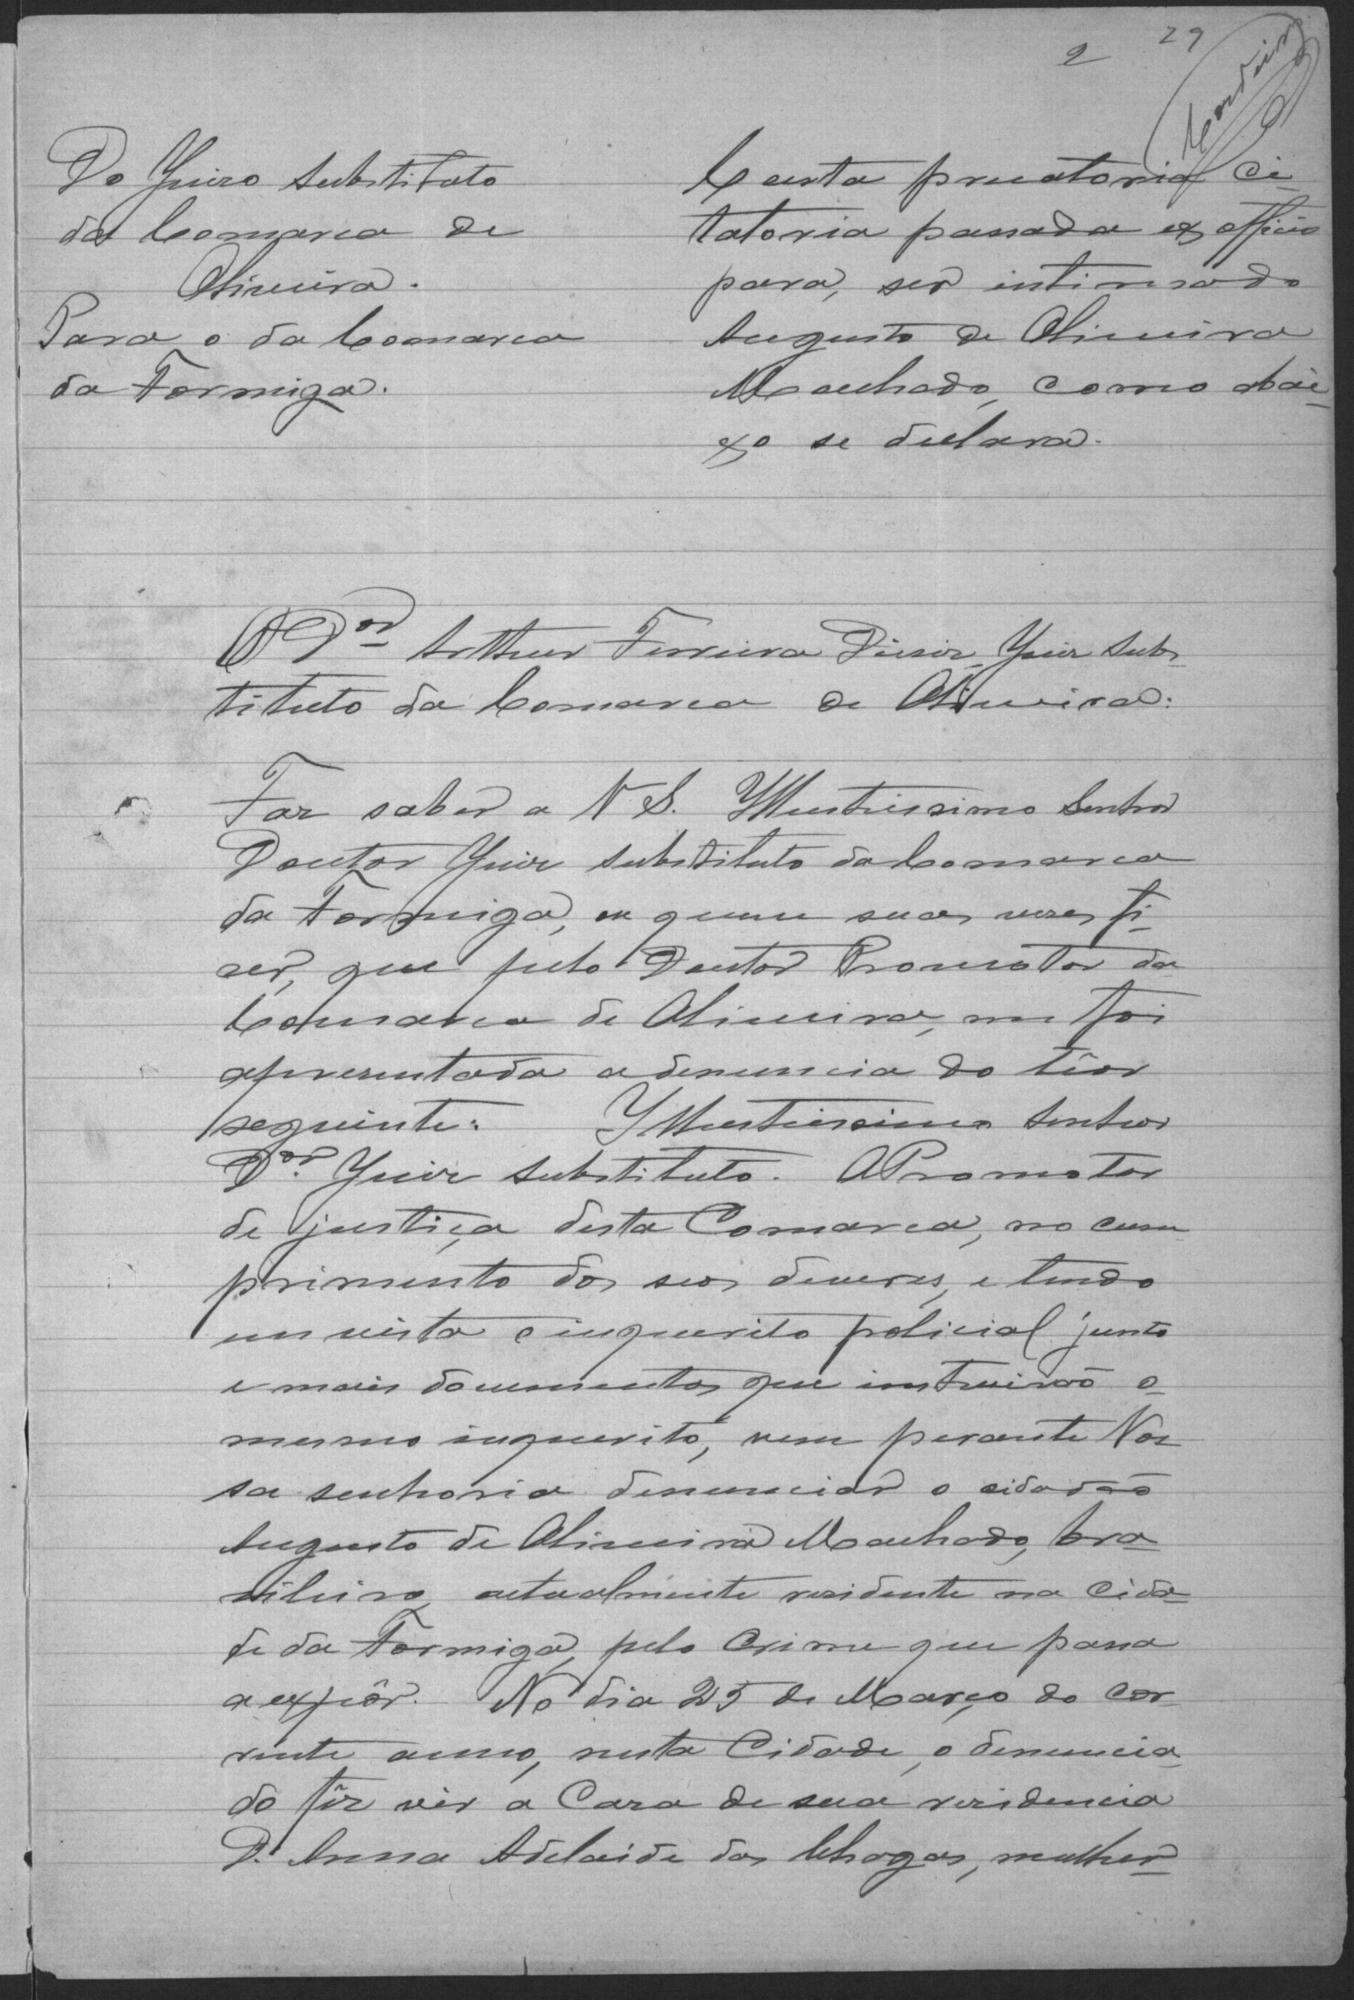 2 29
Cordeiro
Do Juizo Substituto
da Comarca de
Oliveira.
Para o da Comarca
da Formiga.
Carta precatoria ci-
tatoria passada ex officio
para, ser intimado
Augusto de Oliveira
Machado, como abai-
xo se declara.
O Dor Arthur Ferreira Diniz, Juiz Subs-
tituto da Comarca de Oliveira:
Faz saber a V S. Illustrissimo Senhor
Doutor Juiz substituto da Comarca
da Formiga, ou quem suas vezes fi-
zer, que pelo Doutor Promotor da
Comarca de Oliveira, me foi
apresentada a denuncia do têor
seguinte: Illustrissimo Senhor
Dor. Juiz substituto. O Promotor
de justiça desta Comarca, no cum-
primento dos seos deveres, e tendo
em vista o inquerito policial junto
e mais documentos que instruirão o
mesmo inquerito, vem perante Vos-
sa senhoria denunciar o cidadão
Augusto de Oliveira Machado, bra-
sileiro, actualmente residente na Cida-
de da Formiga, pelo Crime que passa
a expôr. No dia 25 de Março do cor-
rente anno, nesta Cidade, o denuncia-
do fêz vir a Caza de sua residencia
D. Anna Adelaide das Chagas, mulher